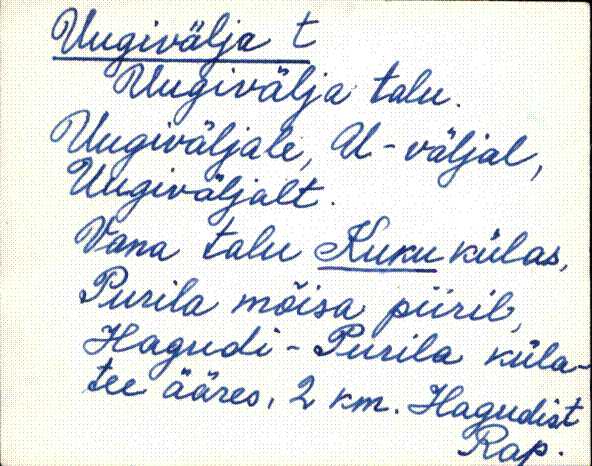 Uugivälja t
Uugivälja talu.
Uugiväljale, U-väljal,
Uugiväljalt.
Vana talu Kuku külas,
Purila mõisa piiril,
Hagudi-Purila küla-
tee ääres, 2 km. Hagudist
Rap.